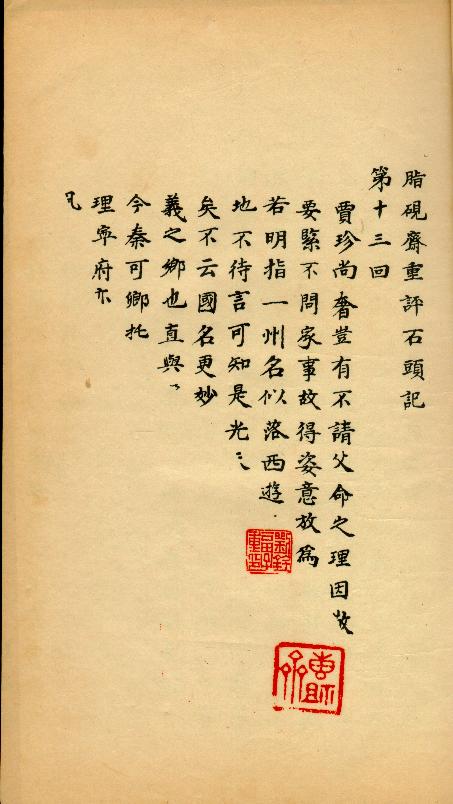 脂硯齋重評石頭記
第十三回
賈珍尚奢豈有不請父命之理因
要緊不問家事故得姿意放爲
若明指一州名似落西遊
地不待言可知是光
矣不云國名更妙
義之鄉也直與
今秦可卿托
理寧府亦
凡
劉銓畐子重印